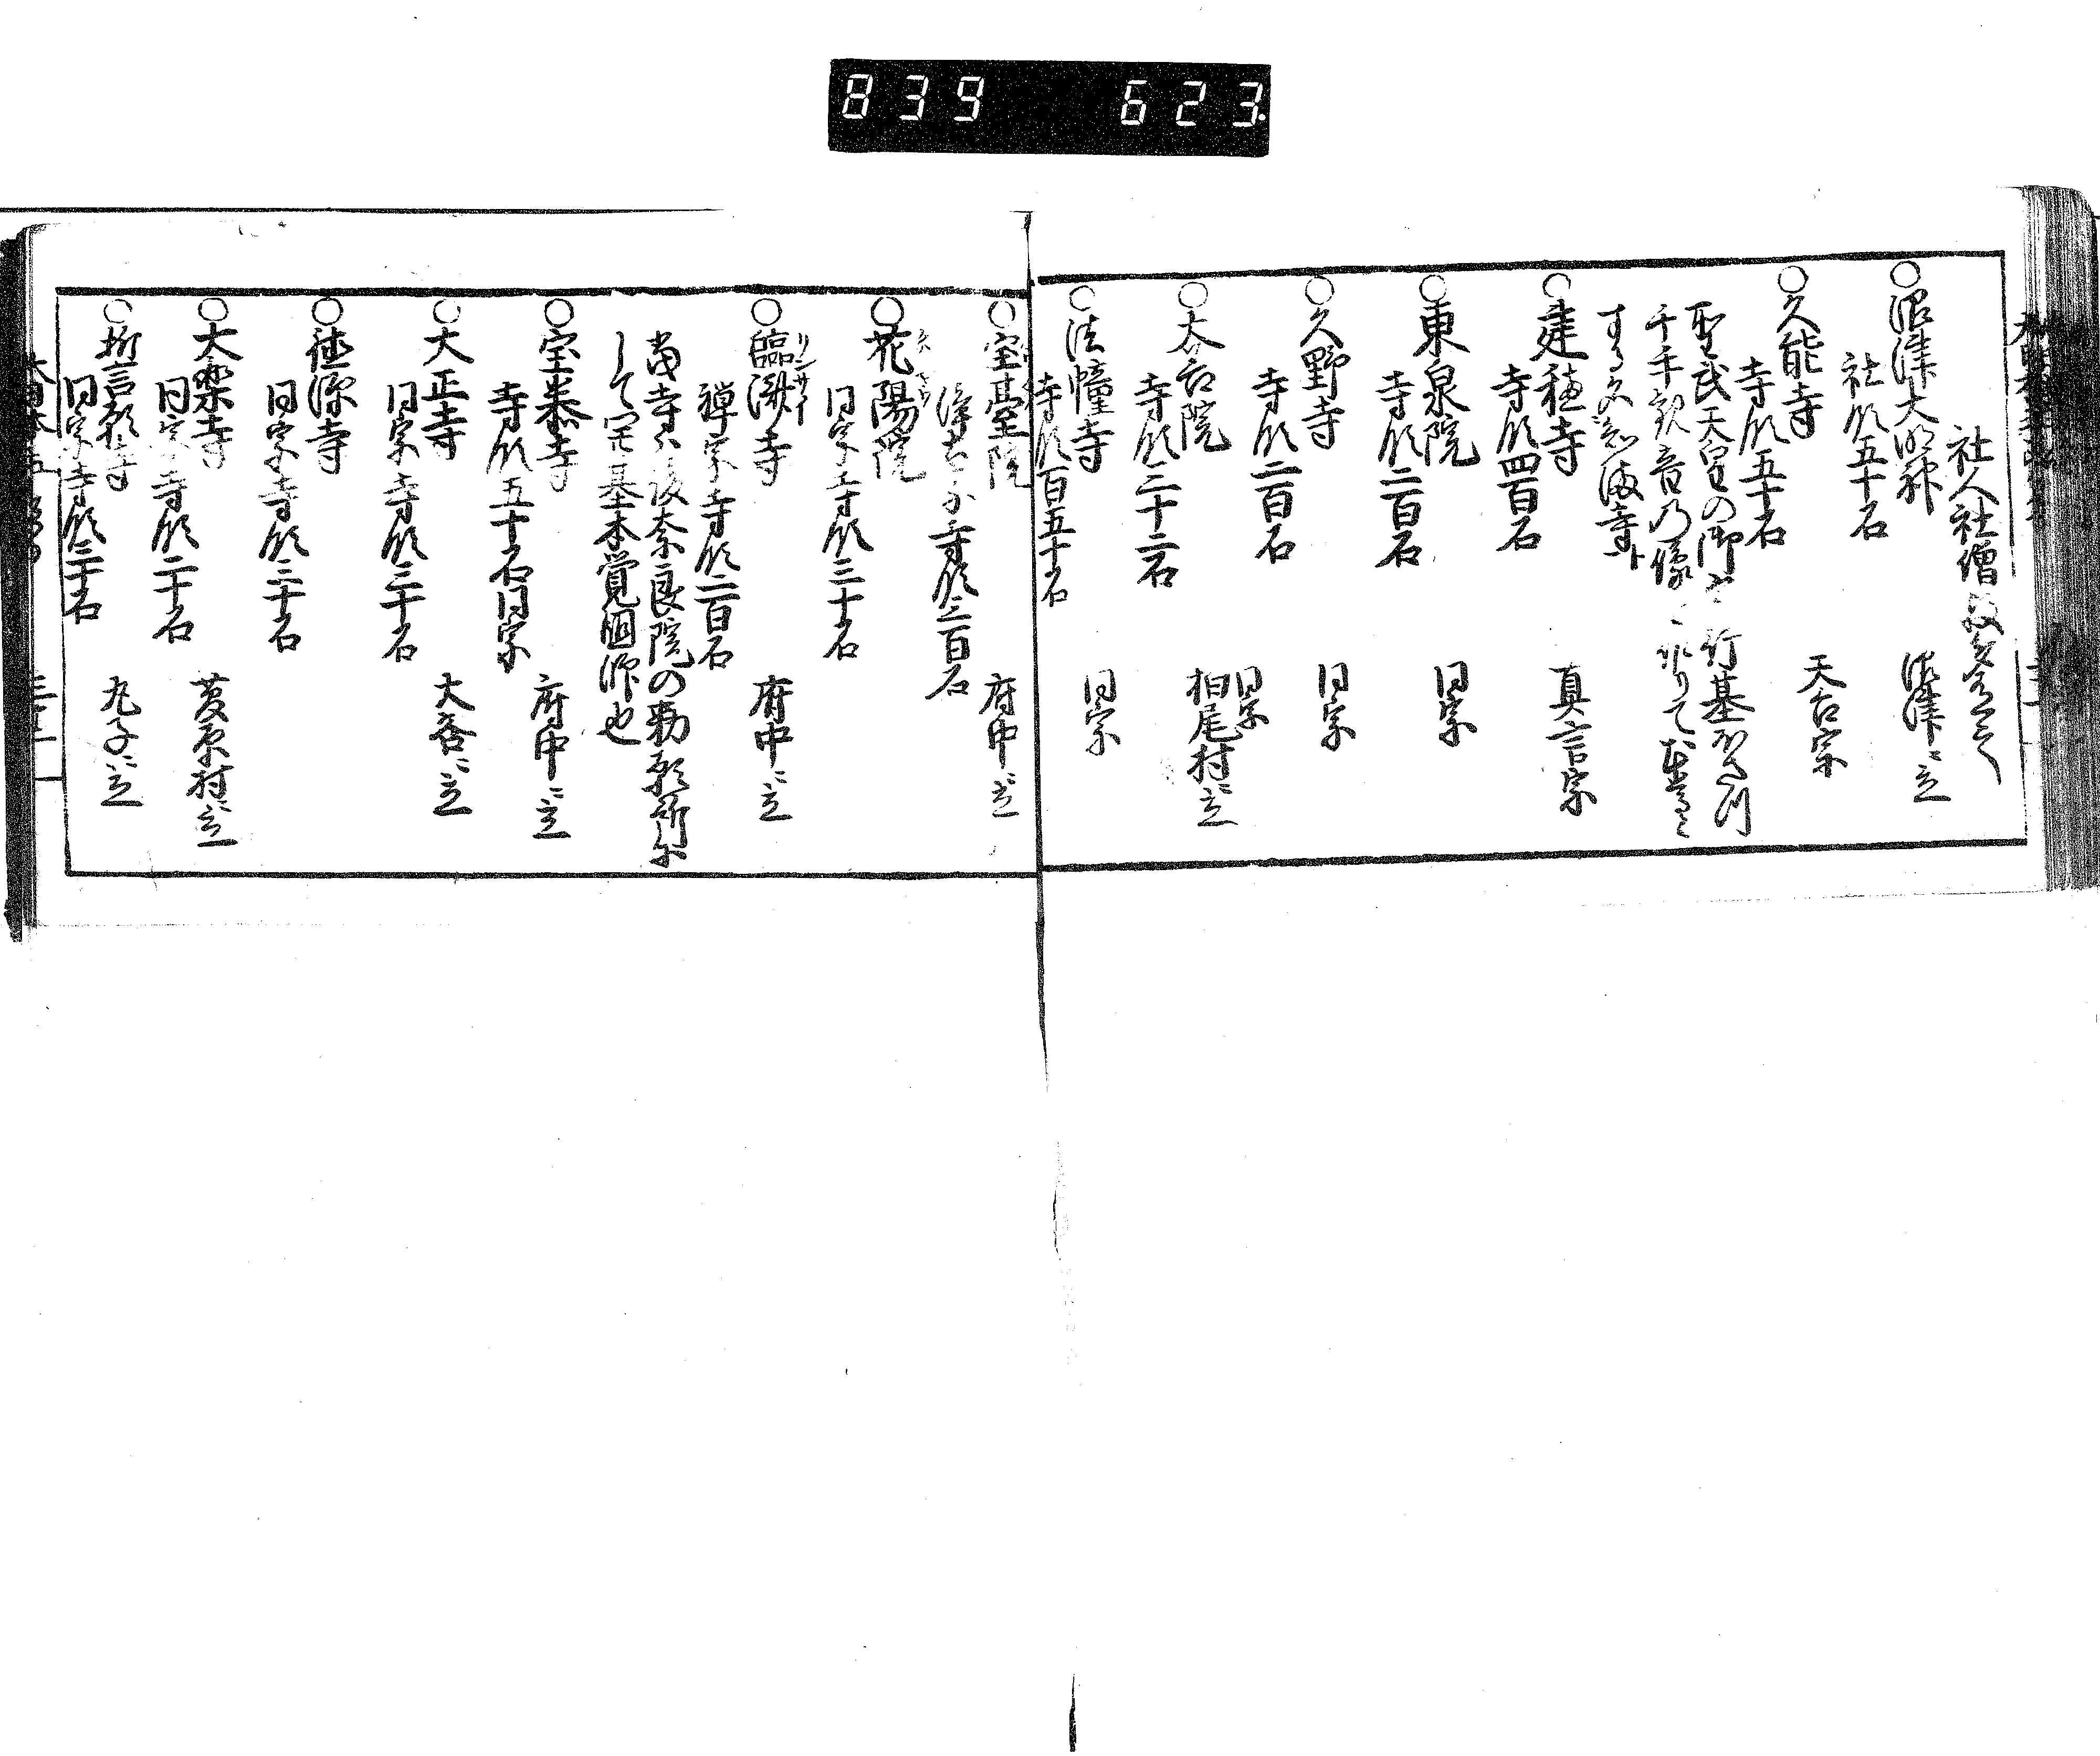 839 623
社人社僧数多有之
○沼津大明神 沼津ニ立
社領五十石
○久能寺 天台宗
寺領五十石
聖武天皇の御宇行基
千手観音乃像 作りて
する 寺ト
○建穂寺 真言宗
寺領四百石
○東泉院 同宗
寺領二百石
○久野寺 同宗
寺領二百石
同宗
○大台院 柏尾村ニ立
寺領三十二石
○法幢寺 同宗
寺領百五十石
○宝臺院 府中ニ立
浄土宗寺領三百石
○花陽院
同宗寺領三十石
リンサイ
○臨済寺 府中ニ立
禅宗寺領二百石
当寺ハ後奈良院の勅願所に
して開基本覚国師也
○宝泰寺 府中ニ立
寺領五十石同宗
○大正寺 大谷ニ立
同宗寺領三十石
○徳源寺
同宗寺領三十石
○大楽寺 葭原村ニ立
同宗寺領二十石
○誓願寺 丸子ニ立
同宗寺領三十石